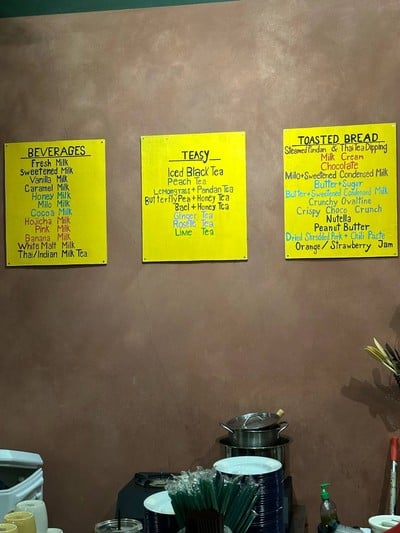 BEVERAGES
Fresh Milk
Sweetened Milk
Vanilla Milk
Caramel Milk
Honey Milk
Milo Milk
Cocoa Milk
Hojicha Milk
Pink Milk
Banana Milk
White Malt Milk
Thai/Indian Milk Tea
TEASY
Iced Black Tea
Peach Tea
Lemongrass + Pandan Tea
Butterfly Pea + Honey Tea
Bael + Honey Tea
Ginger Tea
Roselle Tea
Lime Tea
TOASTED BREAD
Steamed Pandan & Thai Tea Dipping
Milk Cream
Chocolate
Milo + Sweetened Condensed Milk
Butter + Sugar
Butter + Sweetened Condensed Milk
Crunchy Ovaltine
Crispy Choco Crunch
Nutella
Peanut Butter
Dried Shredded Pork + Chili Paste
Orange / Strawberry Jam